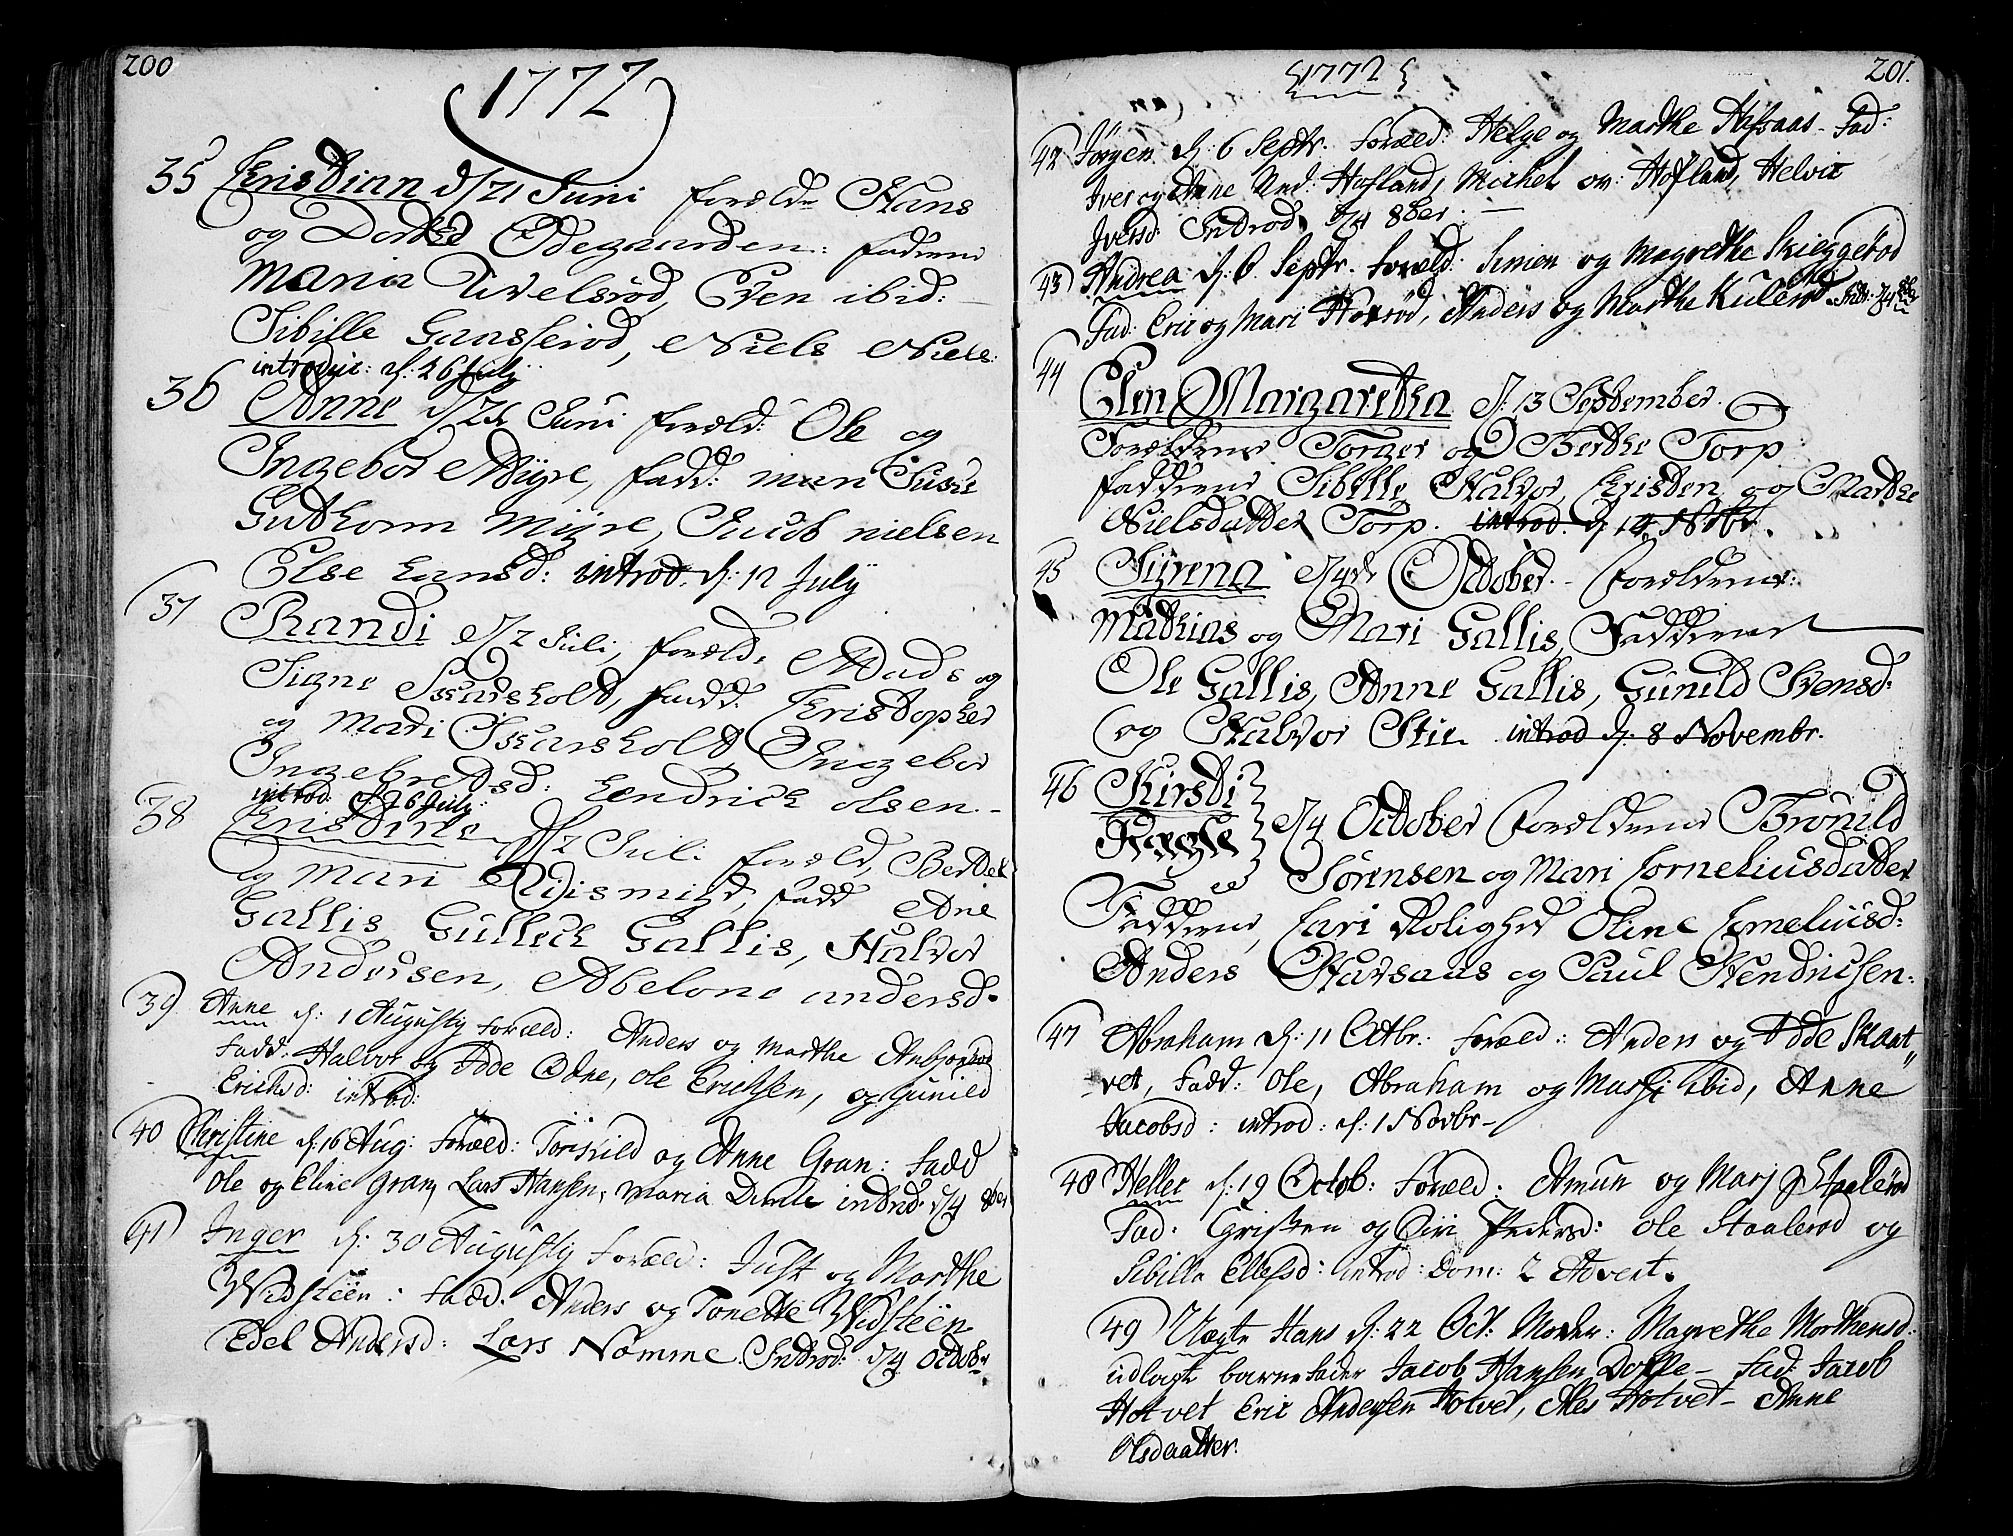 200
1772
35 Kristian d/21 Juni foræld Hans
og Dorthe Ødegaarden: fadrene
Maria Tivelsrød, Even ibid:
Sibille Gaasserød, Niels Niels:
introduc: d: 26 July
36 Anne d/21 Juni foræld: Ole og
Ingebor Myre, fadd: man Susie
Guthorm Myre, Jacob nielsen
Else Hansd: introd. d: 12 July
37 Randi d/2 Juli, foræld, Mads og
Signe Skarsholt, fadd. Kristopher
og Mari Skarsholt, Ingebor
Ingebretsd: Hendrich olsen -
introd: d: 26 July:
38 Kristine d/2 Juli foræld, Berthel
og Mari, fadd Ane
Gallis Gullich Gallis, Halvor
Andersen, Abelone andersd.
39 Anne d: 1 Augusty foræld: Anders og Marthe
Fadd: Halvor og Adde Odne, Ole Erichsen, og Gunild
Ericksd: introd:
40 Christine d: 16 Aug: Foræld: Toriskild og Anne Gran: Fadd
Ole og Eline Gran, Lars Hansen, Maria introd: d/4 8ber
41 Inger d: 30 Augusty foræld: Just og Marthe
Widsteen: Fadd. Anders og Tonette Widsteen
Edel Andersd: Lars Nomme. Introd: d/4 octobr
1772
201.
42 Jørgen d: 6 Septr. Foræld: Helge og Marthe Hafsaas - Fad:
Iver og Anne Ned: Hofland, Michel ov: Hofland, Helvic
Iversd: Introd d/4 8ber. -
43 Andrea d: 6 Septr. Foræld: Simen og Magrethe Skieggerød
Fad: Eric og Mari Horrød, Anders og Marthe Kulerød Intr: d/4 8br
44
Elen Margaretha d: 13 September.
Forældrene Torger og Berthe Torp
faddrene Sibille, Halvor, Kristen og Marthe
Nielsdatter Torp. introd. d 14 Nobr.
45 Sirena d/4de October. - Forældrene:
Mathias og Mari Gallis, Faddrene
Ole Gallis, Anne Gallis, Gunild Svensd:
og Halvor Stie introd d: 8 Novembr.
46 Kirsti
d/4 October Forældrene Brønild
Sørensen og Mari Corneliusdatter
Faddrene, Kari Rolighed Oline Corneliusd:
Anders Harsaas og Paul Hendricsen.
47 Abraham d: 11 Octbr: Foræld: Anders og Adde Skaut
vet, Fadd: Ole, Abraham og Massi ibid, Anne
Jacobsd: introd: d: 1 Novbr -
48 Hellec d: 19 Octob: Foræld: Amun og Marj Staalerød
Fad: Cristen og Siri Pedersd: Ole Staalerød og
Sibilla Ellefsd: introd: Dom: 2 Advent.
49 Uægte Hans d: 22 Oct: Moder: Magrethe Morthensd:
udlagt barnefader Jacob Hansen Doffe - Fad: Jacob
Hotvet Eric Andersen Hotvet, Ales Hotvet - Anne
Olsdaatter.